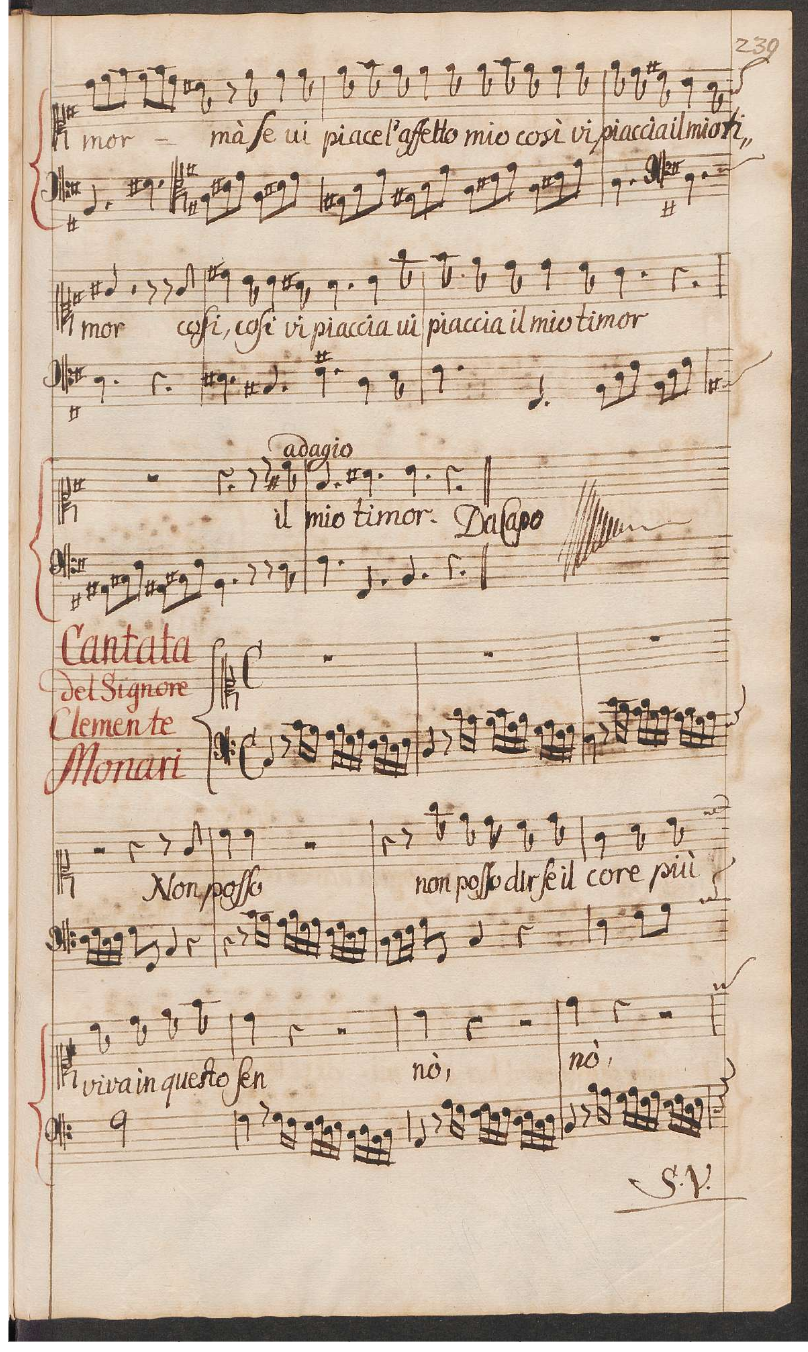 239
mor - mà se vi piace l'affetto mio così vi piaccia il mio ti,,
mor così, così vi piaccia vi piaccia il mio timor
adagio
il mio timor. Da Capo
Cantata
del Signore
Clemente
Monari
Non posso non posso dir se il core più
viva in questo sen nò, nò,
S. V.